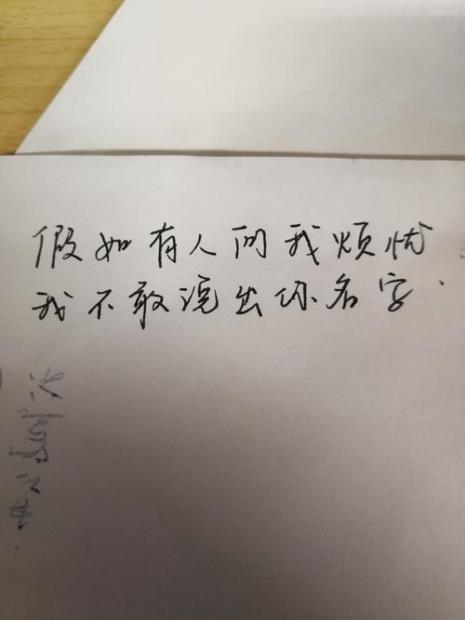 假如有人问我烦忧
我不敢说出你名字.